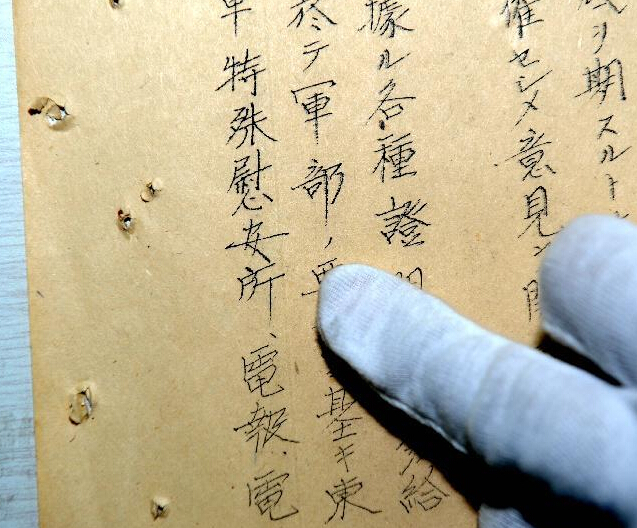 ヲ期スルト
催セシメ意見ヲ
據ル各種證
給
於テ軍部ノ
基キ東
特殊慰安所、電報、電